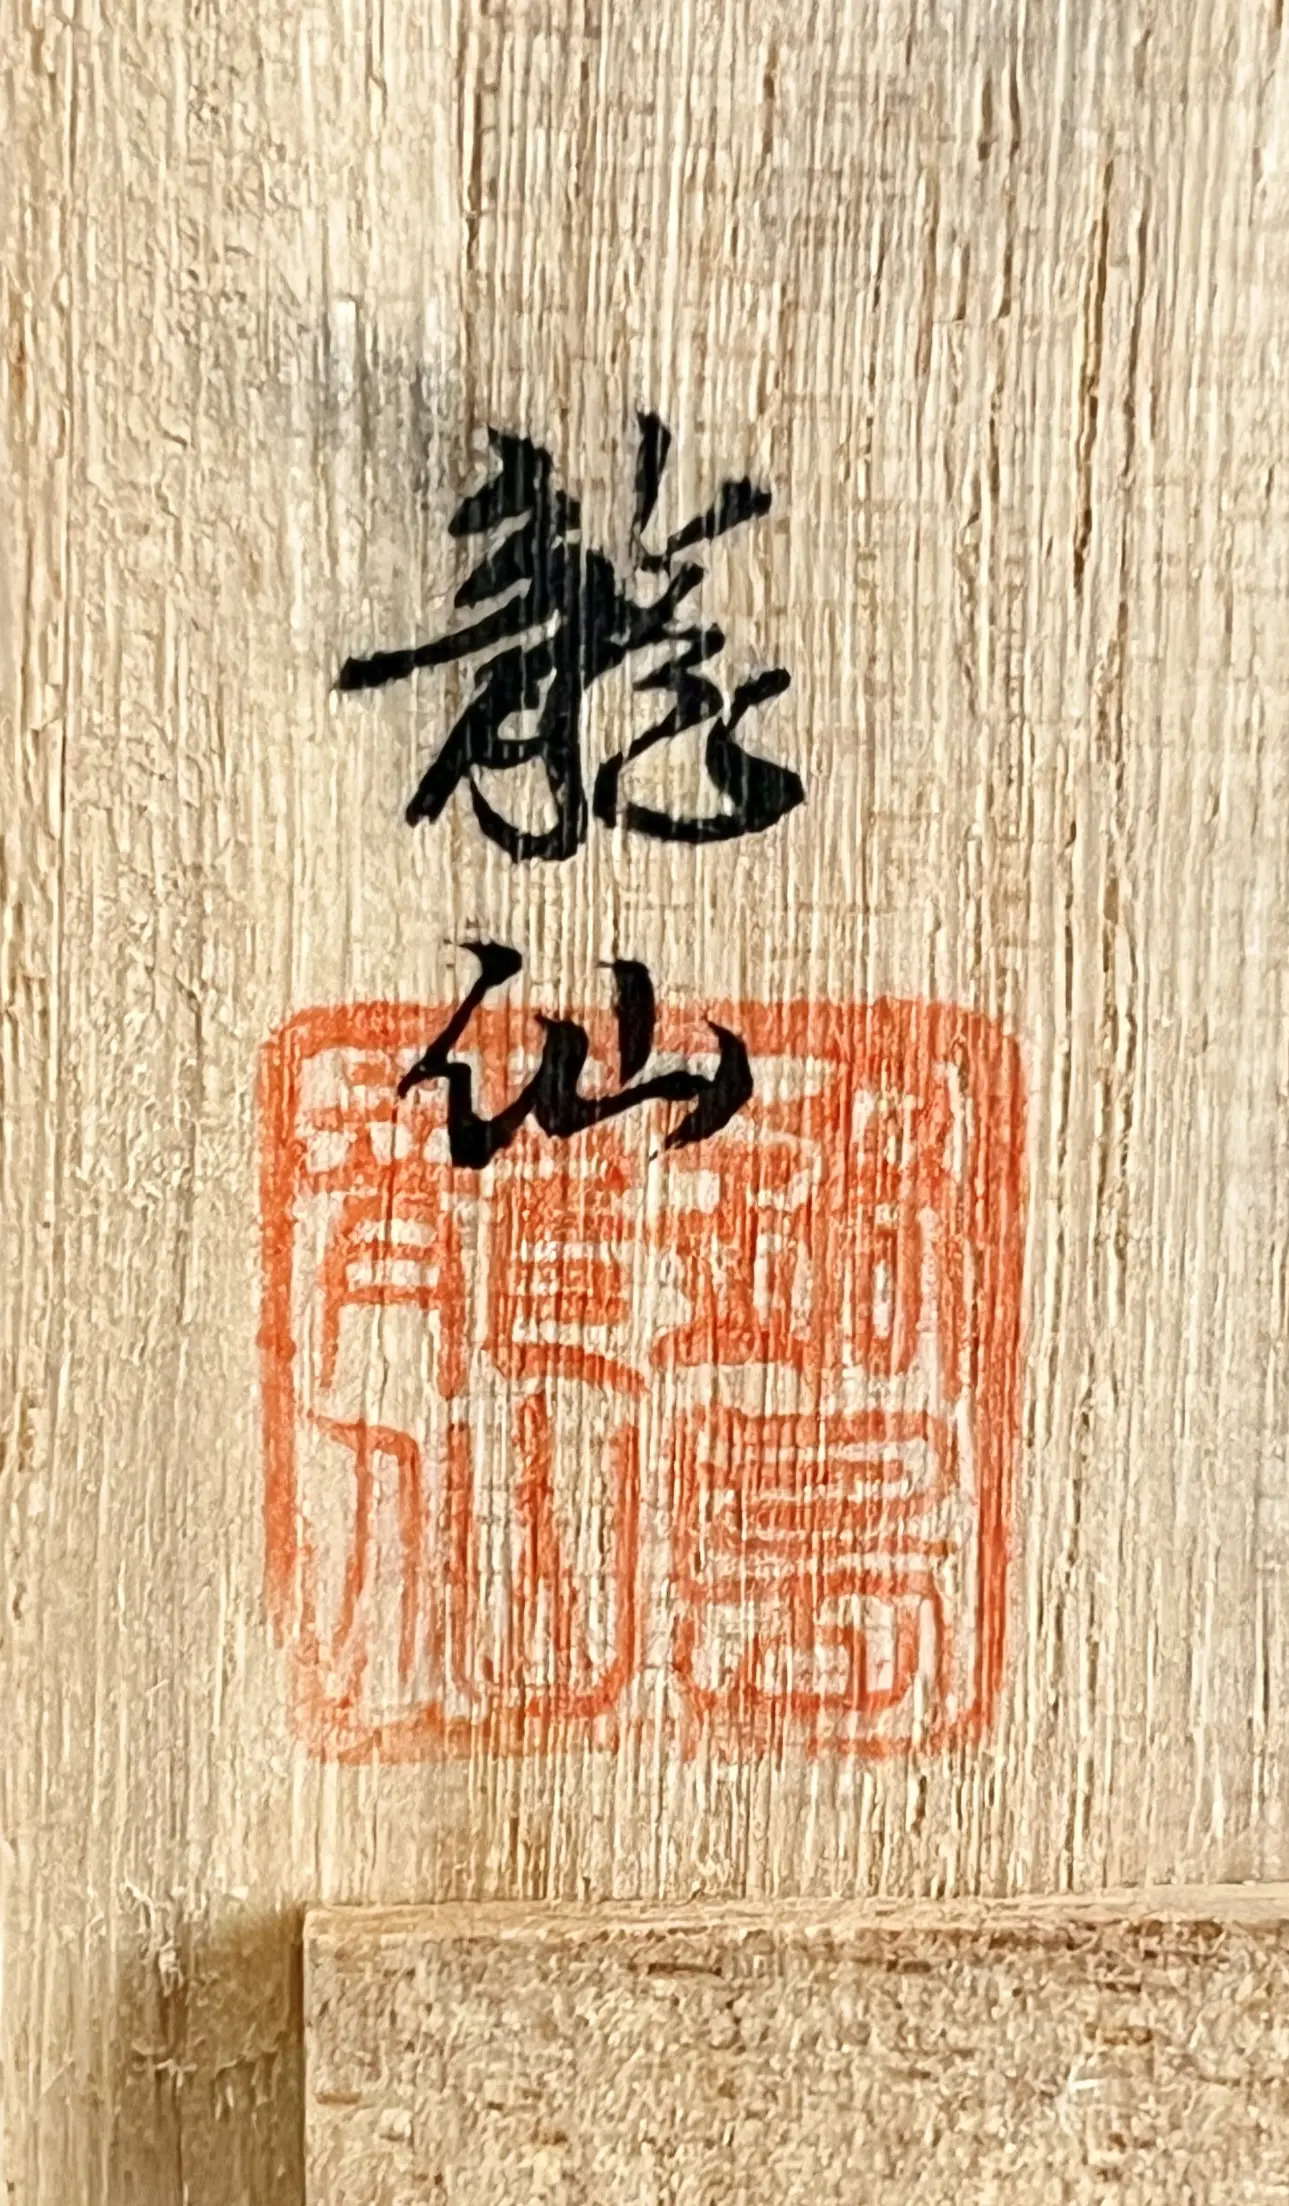 龍仙
龍仙